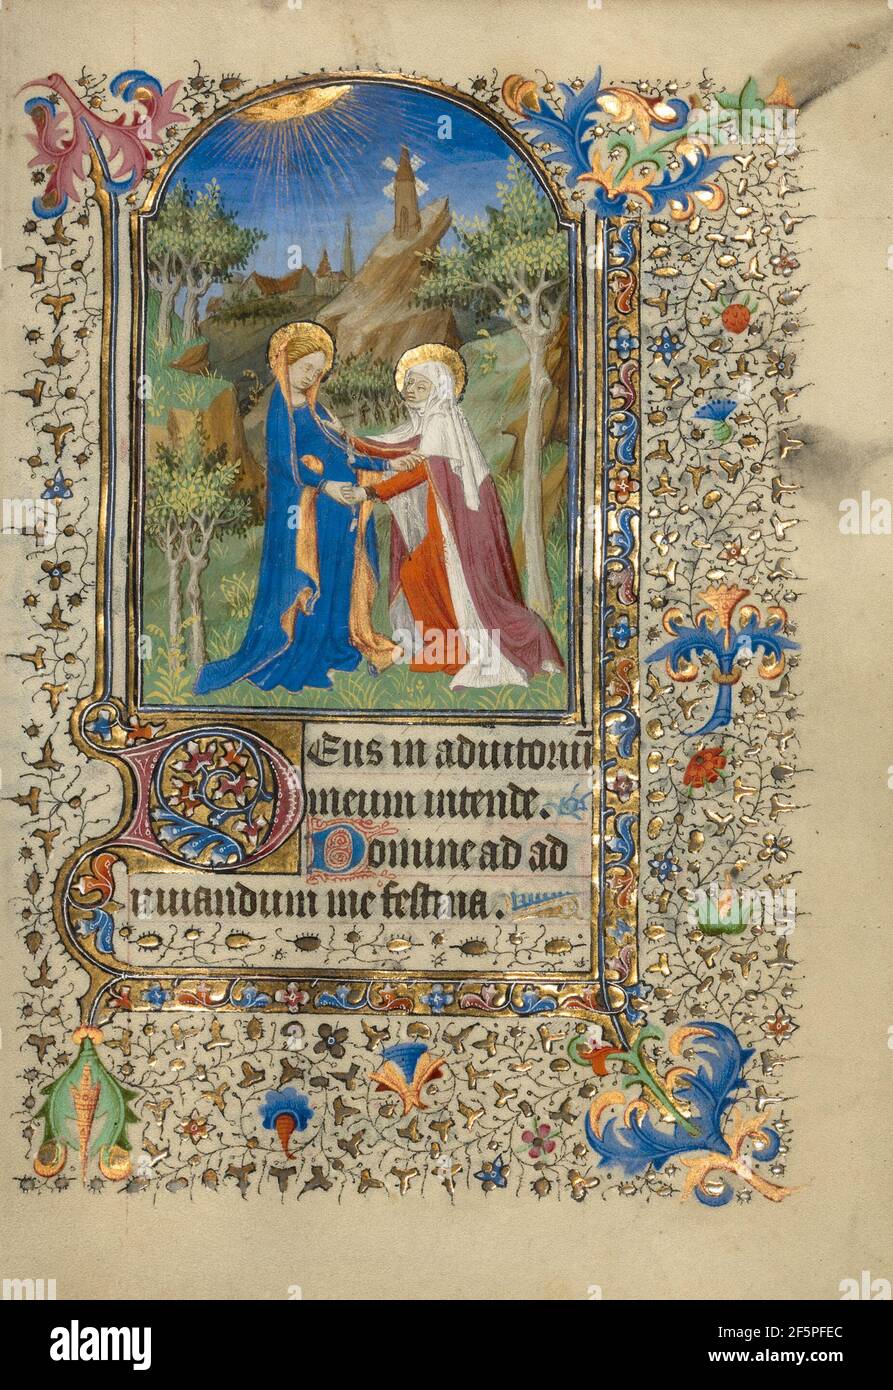 DEus in adiutoriū
meum intende.
Domine ad ad
iuuandum me festina.
alamy
Image ID: 2F5PFEC
www.alamy.com